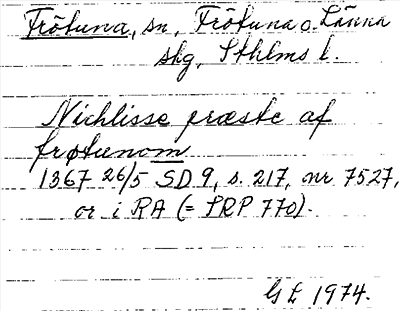 Frötuna, sn, Frötuna o. Länna
skg, Sthlms l.
Nichlisse præste af
frøtunom
1367 26/5 SD 9, s. 217, nr 7527,
or i RA (= SRP 770).
G L 1974.